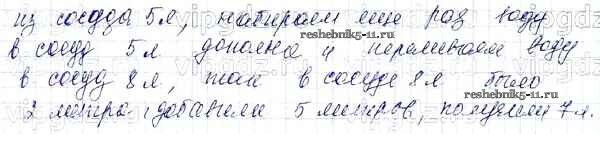 из сосуда 5л, набираем еще раз воду
в сосуд 5л дополна и переливаем воду
в сосуд 8л, так в сосуде 8л было
2 литра, добавили 5 литров, получили 7л.
reshebnik5-11.ru
reshebnik5-11.ru